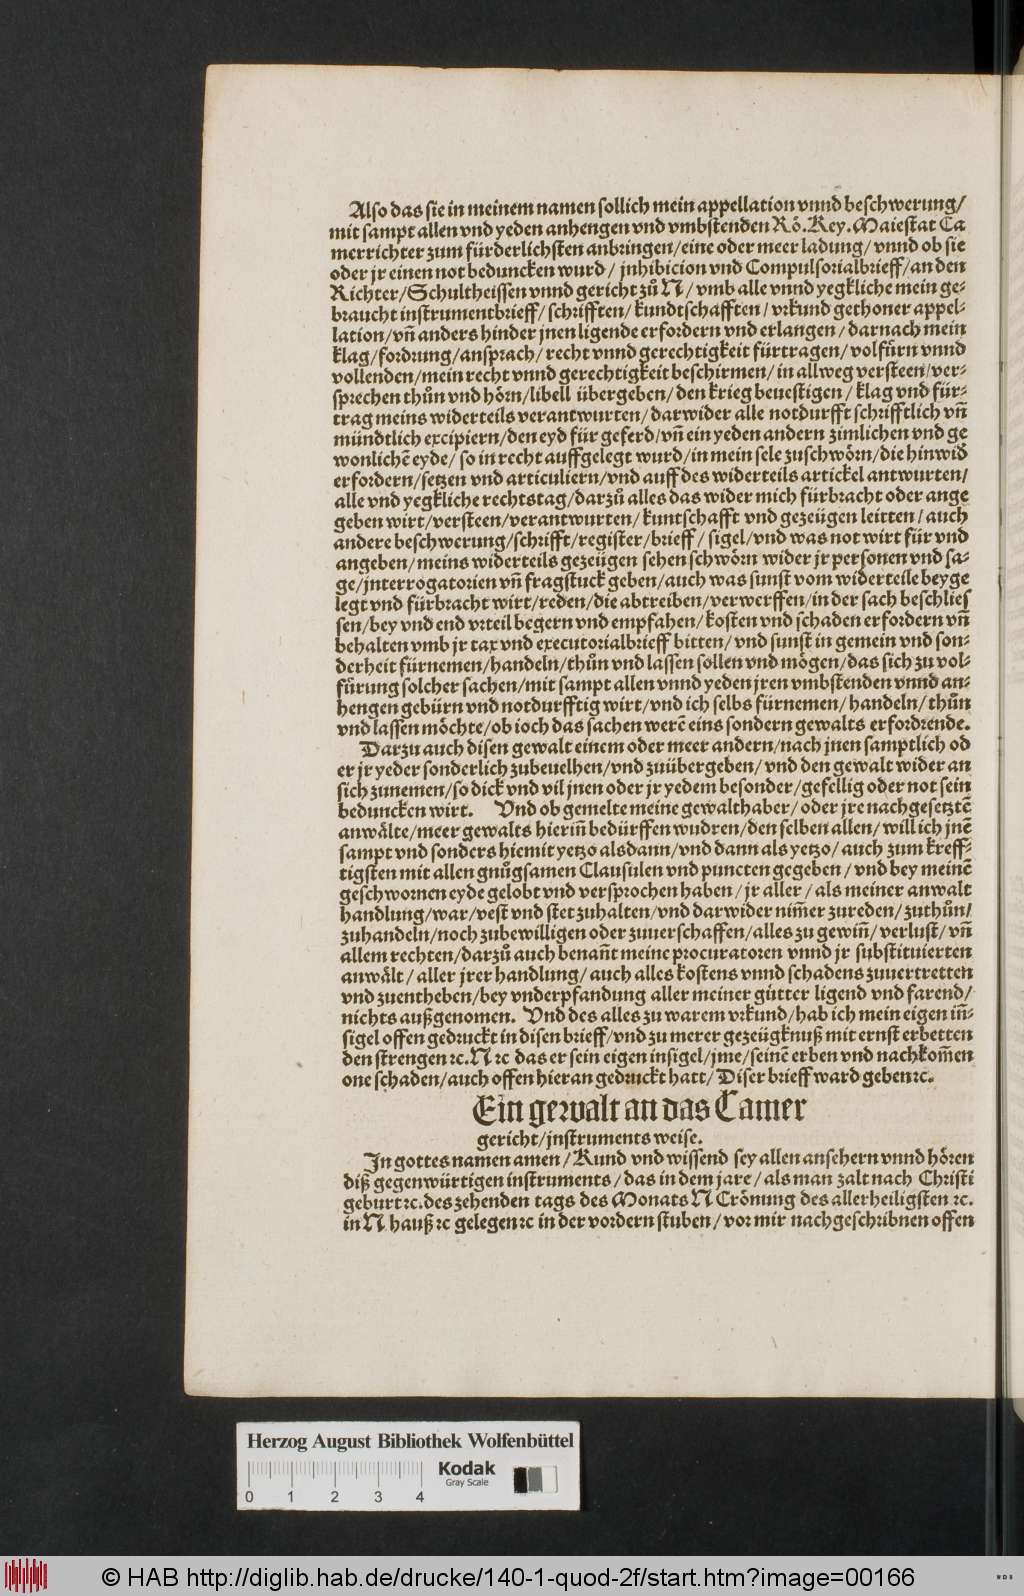 Also das sie in meinem namen sollich mein appellation vnnd beschwerung/
mit sampt allen vnd yeden anhengen vnd vmbstenden Rö. Key. Maiestat Ca
merrichter zum fürderlichsten anbringen/eine oder meer ladung/vnnd ob sie
oder jr einen not beduncken wurd/ jnhibicion vnd Compulsorialbrieff/an den
Richter/Schultheissen vnnd gericht zů N/ vmb alle vnnd yegkliche mein ge-
braucht instrumentbrieff/ schrifften/ kundtschafften/ vrkund gethoner appel-
lation/vn̄ anders hinder jnen ligende erfordern vnd erlangen/ darnach mein
klag/fordrung/ansprach/ recht vnnd gerechtigkeit fürtragen/volfürn vnnd
vollenden/mein recht vnnd gerechtigkeit beschirmen/ in allweg versteen/ver-
sprechen thůn vnd hörn/libell übergeben/ den krieg beuestigen/ klag vnd für-
trag meins widerteils verantwurten/ darwider alle notdurfft schrifftlich vn̄
mündtlich excipiern/den eyd für geferd/vn̄ ein yeden andern zimlichen vnd ge
wonlichē eyde/ so in recht auffgelegt wurd/in mein sele zuschwörn/die hinwid
erfordern/setzen vnd articuliern/vnd auff des widerteils artickel antwurten/
alle vnd yegkliche rechtstag/darzů alles das wider mich fürbracht oder ange
geben wirt/versteen/verantwurten/ kuntschafft vnd gezeügen leitten/ auch
andere beschwerung/schrifft/register/brieff/ sigel/vnd was not wirt für vnd
angeben/meins widerteils gezeügen sehen schwörn wider jr personen vnd sa-
ge/jnterrogatorien vn̄ fragstuck geben/auch was sunst vom widerteile beyge
legt vnd fürbracht wirt/reden/die abtreiben/verwerffen/in der sach beschlies
sen/bey vnd end vrteil begern vnd empfahen/ kosten vnd schaden erfordern vn̄
behalten vmb jr tax vnd executorialbrieff bitten/ vnd sunst in gemein vnd son-
derheit fürnemen/handeln/thůn vnd lassen sollen vnd mögen/das sich zu vol-
fürung solcher sachen/mit sampt allen vnnd yeden jren vmbstenden vnnd an-
hengen gebürn vnd notdurfftig wirt/vnd ich selbs fürnemen/ handeln/ thůn
vnd lassen möchte/ob ioch das sachen werē eins sondern gewalts erfordrende.
Darzu auch disen gewalt einem oder meer andern/nach jnen samptlich od
er jr yeder sonderlich zubeuelhen/vnd zuübergeben/ vnd den gewalt wider an
sich zunemen/so dick vnd vil jnen oder jr yedem besonder/gefellig oder not sein
beduncken wirt. Vnd ob gemelte meine gewalthaber/ oder jre nachgesetztē
anwälte/meer gewalts hierin̄ bedürffen wudren/den selben allen/ will ich jnē
sampt vnd sonders hiemit yetzo alsdann/vnd dann als yetzo/ auch zum kreff-
tigsten mit allen gnůgsamen Clausulen vnd puncten gegeben/ vnd bey meinē
geschwornen eyde gelobt vnd versprochen haben/ jr aller/ als meiner anwalt
handlung/war/vest vnd stet zuhalten/vnd darwider nim̄er zureden/zuthůn/
zuhandeln/noch zubewilligen oder zuuerschaffen/alles zu gewin̄/verlust/vn̄
allem rechten/darzů auch benan̄t meine procuratoren vnnd jr substituierten
anwält/ aller jrer handlung/ auch alles kostens vnnd schadens zuuertretten
vnd zuentheben/bey vnderpfandung aller meiner gütter ligend vnd farend/
nichts außgenomen. Vnd des alles zu warem vrkund/hab ich mein eigen in̄-
sigel offen gedruckt in disen brieff/vnd zu merer gezeügknuß mit ernst erbetten
den strengen ꝛc. N ꝛc das er sein eigen insigel/jme/seinē erben vnd nachkom̄en
one schaden/auch offen hieran gedruckt hatt/ Diser brieff ward geben ꝛc.
Ein gewalt an das Camer
gericht/jnstruments weise.
In gottes namen amen/Kund vnd wissend sey allen ansehern vnnd hören
diß gegenwürtigen instruments/ das in dem jare/ als man zalt nach Christi
geburt ꝛc. des zehenden tags des Monats N Crönung des allerheiligsten ꝛc.
in N. hauß ꝛc gelegen ꝛc in der vordern stuben/ vor mir nachgeschribnen offen
Herzog August Bibliothek Wolfenbüttel
Kodak
Gray Scale
0 1 2 3 4
© HAB http://diglib.hab.de/drucke/140-1-quod-2f/start.htm?image=00166